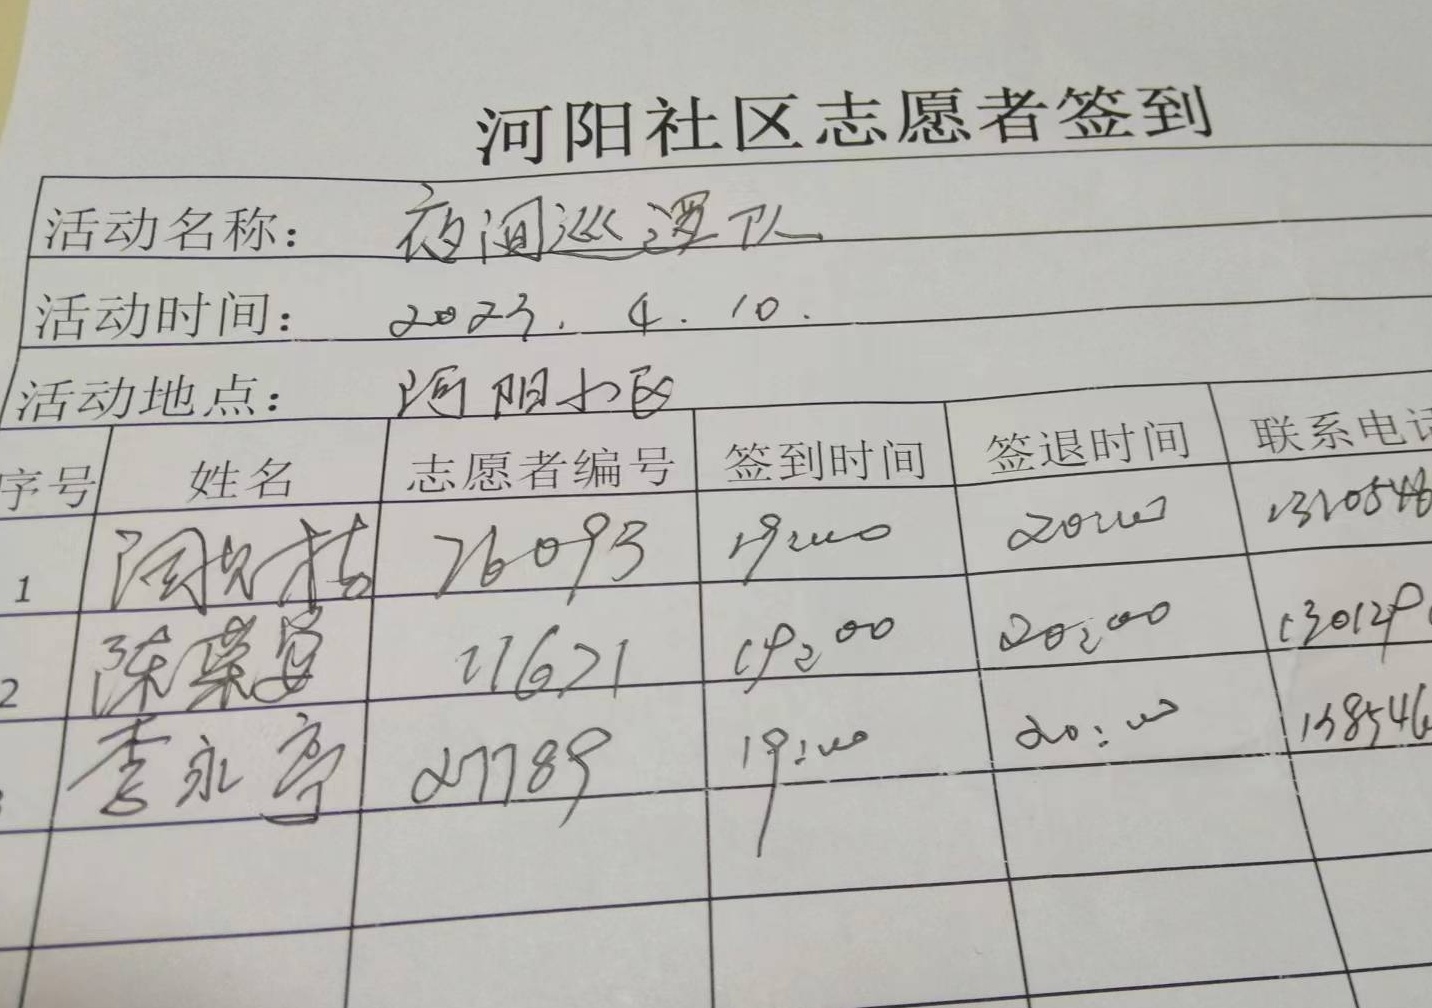 河阳社区志愿者签到
活动名称： 夜间巡逻队
活动时间： 2023.4.10.
活动地点： 河阳小区
序号 姓名 志愿者编号 签到时间 签退时间 联系电话
1 76093 19:00 20:00 1310548
2 陈荣安 11621 19:00 20:00 130129
李永亭 27789 19:00 20:00 138546